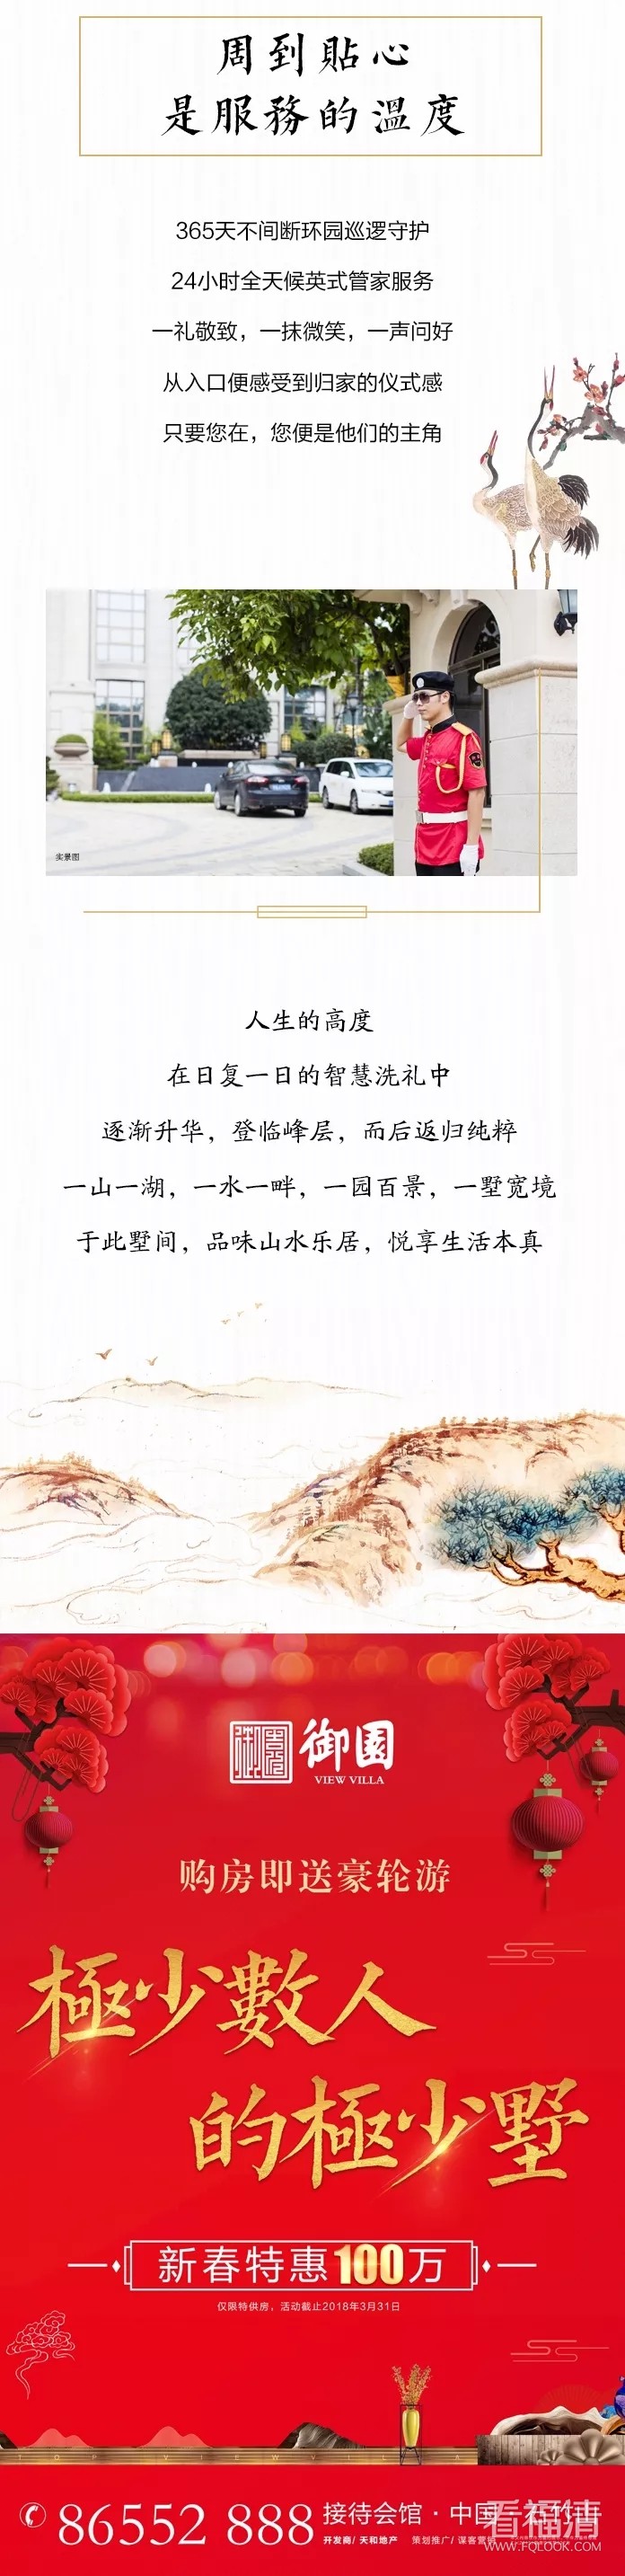 周到貼心
是服務的溫度
365天不间断环园巡逻守护
24小时全天候英式管家服务
一礼敬致，一抹微笑，一声问好
从入口便感受到归家的仪式感
只要您在，您便是他们的主角
实景图
人生的高度
在日复一日的智慧洗礼中
逐渐升华，登临峰层，而后返归纯粹
一山一湖，一水一畔，一园百景，一墅宽境
于此墅间，品味山水乐居，悦享生活本真
御园
VIEW VILLA
购房即送豪轮游
極少數人
的極少墅
新春特惠100万
仅限特供房，活动截止2018年3月31日
TOP VIEW VILLA
86552 888
接待会馆·中国·石竹山
开发商/天和地产 策划推广/谋客营销
看福清
WWW.FQLOOK.COM